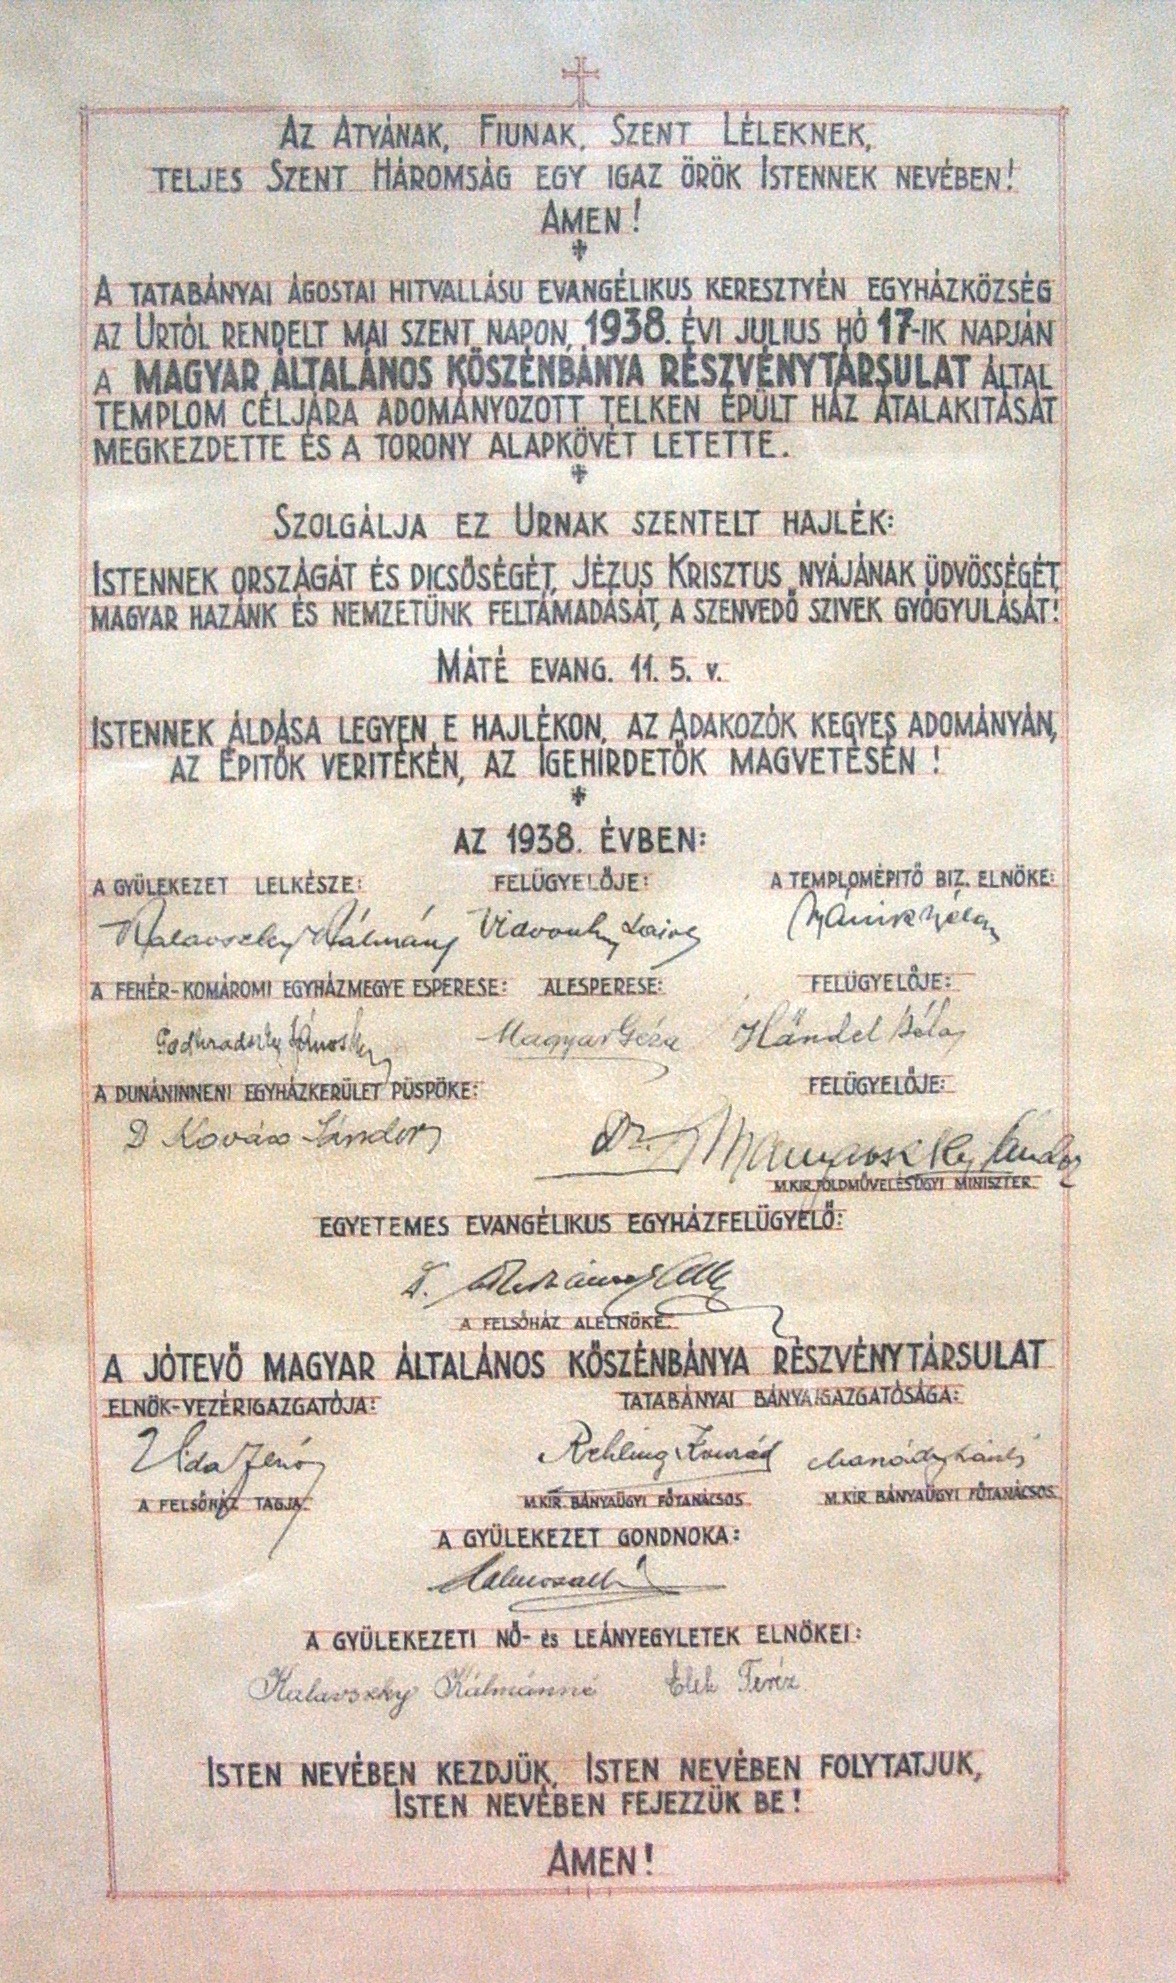 AZ ATYÁNAK, FIUNAK, SZENT LÉLEKNEK,
TELJES SZENT HÁROMSÁG EGY IGAZ ÖRÖK ISTENNEK NEVÉBEN!
AMEN!
A TATABÁNYAI ÁGOSTAI HITVALLÁSU EVANGÉLIKUS KERESZTYÉN EGYHÁZKÖZSÉG
AZ URTÓL RENDELT MAI SZENT NAPON, 1938. ÉVI JULIUS HÓ 17-IK NAPJÁN
A MAGYAR ÁLTALÁNOS KŐSZÉNBÁNYA RÉSZVÉNYTÁRSULAT ÁLTAL
TEMPLOM CÉLJÁRA ADOMÁNYOZOTT TELKEN ÉPÜLT HÁZ ÁTALAKITÁSÁT
MEGKEZDETTE ÉS A TORONY ALAPKÖVÉT LETETTE.
SZOLGÁLJA EZ URNAK SZENTELT HAJLÉK:
ISTENNEK ORSZÁGÁT ÉS DICSŐSÉGÉT, JÉZUS KRISZTUS NYÁJÁNAK ÜDVÖSSÉGÉT,
MAGYAR HAZÁNK ÉS NEMZETÜNK FELTÁMADÁSÁT, A SZENVEDŐ SZIVEK GYÓGYULÁSÁT!
MÁTÉ EVANG. 11. 5. V.
ISTENNEK ÁLDÁSA LEGYEN E HAJLÉKON, AZ ADAKOZÓK KEGYES ADOMÁNYÁN,
AZ ÉPITŐK VERITÉKÉN, AZ IGEHIRDETŐK MAGVETÉSÉN!
AZ 1938. ÉVBEN:
A GYÜLEKEZET LELKÉSZE: FELÜGYELŐJE: A TEMPLOMÉPITŐ BIZ. ELNÖKE:
Kalavszky Kálmán
A FEHÉR-KOMÁROMI EGYHÁZMEGYE ESPERESE: ALESPERESE: FELÜGYELŐJE:
Magyar Géza Händel Béla
A DUNÁNINNENI EGYHÁZKERÜLET PÜSPÖKE: FELÜGYELŐJE:
D Kovács Sándor Dr. Sándor
M.KIR.FÖLDMŰVELÉSÜGYI MINISZTER
EGYETEMES EVANGÉLIKUS EGYHÁZFELÜGYELŐ:
A FELSŐHÁZ ALELNÖKE
A JÓTEVŐ MAGYAR ÁLTALÁNOS KŐSZÉNBÁNYA RÉSZVÉNYTÁRSULAT
ELNÖK-VEZÉRIGAZGATÓJA: TATABÁNYAI BÁNYAIGAZGATÓSÁGA:
Vida Jenő Rehling Konrád
A FELSŐHÁZ TAGJA M.KIR. BÁNYAÜGYI FŐTANÁCSOS M.KIR BÁNYAÜGYI FŐTANÁCSOS
A GYÜLEKEZET GONDNOKA:
A GYÜLEKEZETI NŐ- és LEÁNYEGYLETEK ELNÖKEI:
Kalavszky Kálmánné Elek Teréz
ISTEN NEVÉBEN KEZDJÜK, ISTEN NEVÉBEN FOLYTATJUK,
ISTEN NEVÉBEN FEJEZZÜK BE!
AMEN!